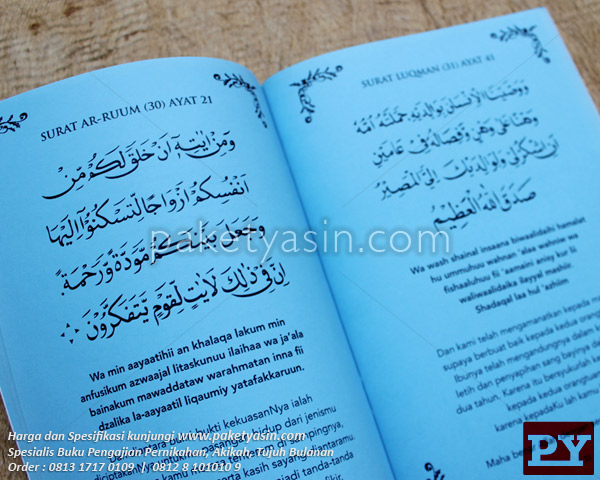 SURAT AR-RUUM (30) AYAT 21
وَمِنْ اٰيٰتِهٖٓ اَنْ خَلَقَ لَكُمْ مِّنْ
اَنْفُسِكُمْ اَزْوَاجًا لِّتَسْكُنُوْٓا اِلَيْهَا
وَجَعَلَ بَيْنَكُمْ مَّوَدَّةً وَّرَحْمَةً ۗ
اِنَّ فِيْ ذٰلِكَ لَاٰيٰتٍ لِّقَوْمٍ يَّتَفَكَّرُوْنَ
Wa min aayaatihii an khalaqa lakum min
anfusikum azwaajal litaskunuu ilaihaa wa ja'ala
bainakum mawaddataw warahmatan inna fii
dzalika la-aayaatil liqaumiy yatafakkaruun.
bukti kekuasanNya ialah
hidup dari jenismu
SURAT LUQMAN (31) AYAT 41
وَوَصَّيْنَا الْاِنْسٰنَ بِوَالِدَيْهِ حَمَلَتْهُ اُمُّهُ
وَهْنًا عَلٰى وَهْنٍ وَفِصَالُهُ فِيْ عَامَيْنِ
اَنِ اشْكُرْ لِيْ وَلِوَالِدَيْكَ اِلَيَّ الْمَصِيْرُ
صَدَقَ اللهُ الْعَظِيْمُ
Wa wash shainal insaana biwaalidaihi hamalat
hu ummuhuu wahnan 'alaa wahniw wa
fishaaluhuu fii 'aamaini aniny kur lii
waliwaalidaika ilayyal mashiir.
Shadaqal laa hul 'azhiim
Dan kami telah mengamanatkan kepada
supaya berbuat baik kepada kedua
Ibunya telah mengandungnya dalam
letih dan penyapihan sang bayinya
dua tahun. Karena itu bersyukurlah
kepada kedua
kepadaKu lah
Maha
paketyasin.com
Harga dan Spesifikasi kunjungi www.paketyasin.com
Spesialis Buku Pengajian Pernikahan, Akikah, Tujuh Bulanan
Order : 0813 1717 0109 // 0812 8 101010 9
PY